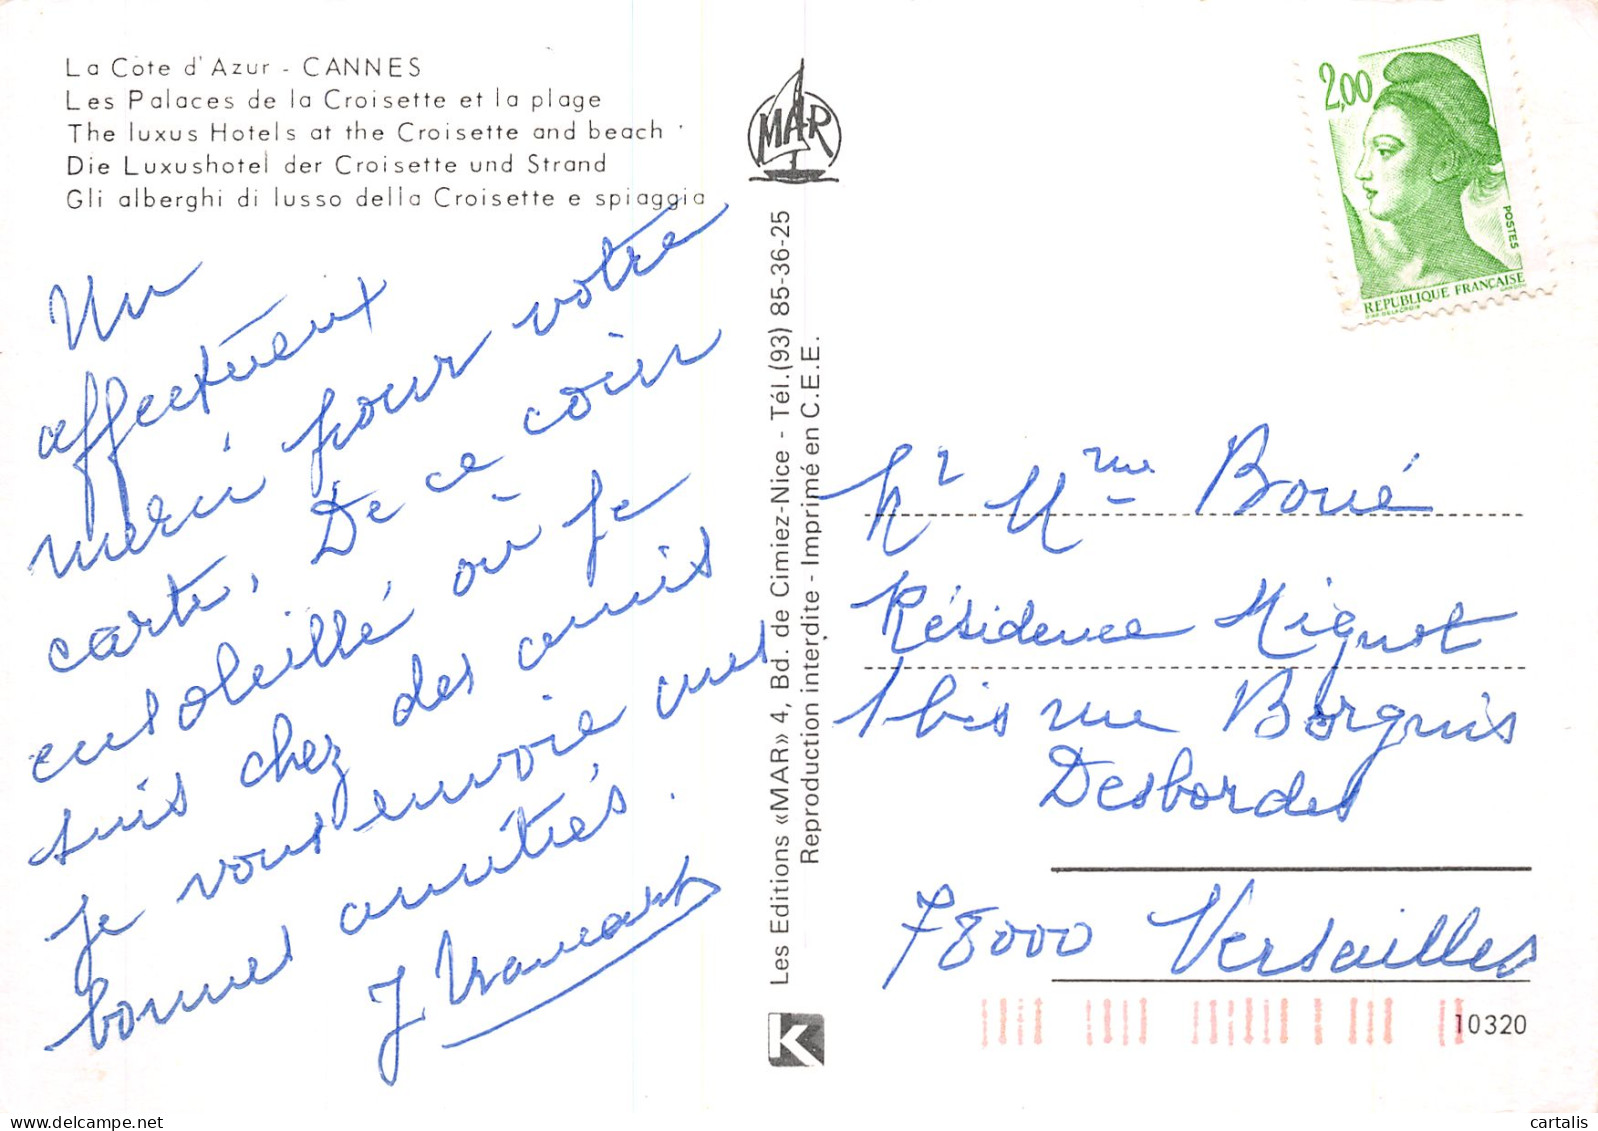 La Côte d'Azur - CANNES
Les Palaces de la Croisette et la plage
The luxus Hotels at the Croisette and beach
Die Luxushotel der Croisette und Strand
Gli alberghi di lusso della Croisette e spiaggia
Un
affectueux
merci pour votre
carte, De ce coin
ensoleillé où je
suis chez des amis
je vous envoie mes
bonnes amitiés.
J
MAR
Les Editions «MAR» 4, Bd. de Cimiez-Nice - Tél.(93) 85-36-25
Reproduction interdite - Imprimé en C.E.E.
K
2,00
POSTES
REPUBLIQUE FRANÇAISE
Mr Mme Boué
Résidence Mignot
1 bis rue Borgnis
Desbordes
78000 Versailles
10320
cartalis